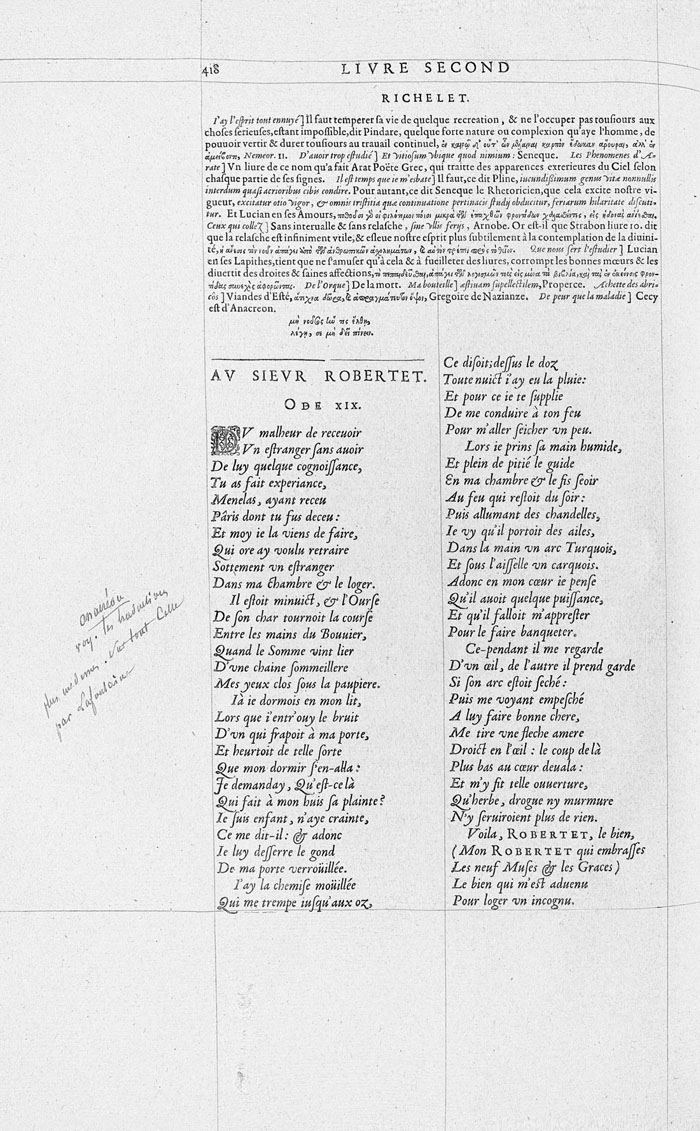 418
LIVRE SECOND
RICHELET.
I'ay l'eſprit tout ennuyé] Il faut temperer ſa vie de quelque recreation, & ne l'occuper pas touſiours aux
choſes ſerieuſes, eſtant impoſſible, dit Pindare, quelque forte nature ou complexion qu'aye l'homme, de
pouuoir vertir & durer touſiours au trauail continuel,
Nemeor. 11. D'auoir trop eſtudié] Et vitioſum vbique quod nimium: Seneque. Les Phenomenes d'A-
rate] Vn liure de ce nom qu'a fait Arat Poëte Grec, qui traitte des apparences exterieures du Ciel ſelon
chaſque partie de ſes ſignes. Il eſt temps que ie m'esbate] Il faut, ce dit Pline, iucundiſſimum genus vitæ nonnullis
interdum quaſi acrioribus cibis condire. Pour autant, ce dit Seneque le Rhetoricien, que cela excite noſtre vi-
gueur, excitatur otio vigor, & omnis triſtitia quæ continuatione pertinacis ſtudij obducitur, feriarum hilaritate diſcuti-
tur. Et Lucian en ſes Amours,
Ceux qui collez] Sans interualle & sans relaſche, ſine vllis ferijs, Arnobe. Or eſt-il que Strabon liure 10. dit
que la relaſche eſt infiniment vtile, & eſleue noſtre eſprit plus ſubtilement à la contemplation de la diuini-
té, Que nous ſert l'eſtudier] Lucian
en ſes Lapithes, tient que ne s'amuſer qu'à cela & à fueilleter des liures, corrompt les bonnes mœurs & les
diuertit des droites & ſaines affections,
De l'Orque] De la mort. Ma bouteille] æſtiuam ſupellectilem, Properce. Achette des abri-
cós] Viandes d'Eſté, Gregoire de Nazianze. De peur que la maladie] Cecy
eſt d'Anacreon.
AV SIEVR ROBERTET.
ODE XIX.
DV malheur de receuoir
Vn eſtranger ſans auoir
De luy quelque cognoiſſance,
Tu as fait experiance,
Menelas, ayant receu
Pâris dont tu fus deceu:
Et moy ie la viens de faire,
Qui ore ay voulu retraire
Sottement vn eſtranger
Dans ma chambre & le loger.
Il eſtoit minuict, & l'Ourſe
De ſon char tournoit la courſe
Entre les mains du Bouuier,
Quand le Somme vint lier
D'vne chaine ſommeillere
Mes yeux clos ſous la paupiere.
Ià ie dormois en mon lit,
Lors que i'entr'ouy le bruit
D'vn qui frapoit à ma porte,
Et heurtoit de telle ſorte
Que mon dormir ſ'en-alla:
Ie demanday, Qu'eſt-ce là
Qui fait à mon huis ſa plainte?
Ie ſuis enfant, n'aye crainte,
Ce me dit-il: & adonc
Ie luy deſſerre le gond
De ma porte verroüillée.
I'ay la chemiſe moüillée
Qui me trempe iuſqu'aux oz,
Ce diſoit; deſſus le doz
Toute nuict i'ay eu la pluie:
Et pour ce ie te ſupplie
De me conduire à ton feu
Pour m'aller ſeicher vn peu.
Lors ie prins ſa main humide,
Et plein de pitié le guide
En ma chambre & le fis ſeoir
Au feu qui reſtoit du ſoir:
Puis allumant des chandelles,
Ie vy qu'il portoit des ailes,
Dans la main vn arc Turquois,
Et ſous l'aiſſelle vn carquois.
Adonc en mon cœur ie penſe
Qu'il auoit quelque puiſſance,
Et qu'il falloit m'appreſter
Pour le faire banqueter.
Ce-pendant il me regarde
D'vn œil, de l'autre il prend garde
Si ſon arc eſtoit ſeché:
Puis me voyant empeſché
A luy faire bonne chere,
Me tire vne fleche amere
Droict en l'œil: le coup delà
Plus bas au cœur deuala:
Et m'y fit telle ouuerture,
Qu'herbe, drogue ny murmure
N'y ſeruiroient plus de rien.
Voila, ROBERTET, le bien,
(Mon ROBERTET qui embraſſes
Les neuf Muſes & les Graces)
Le bien qui m'eſt aduenu
Pour loger vn incognu.
anacréon
voy. les traductions
plus modernes. surtout celle
par Lafontaine